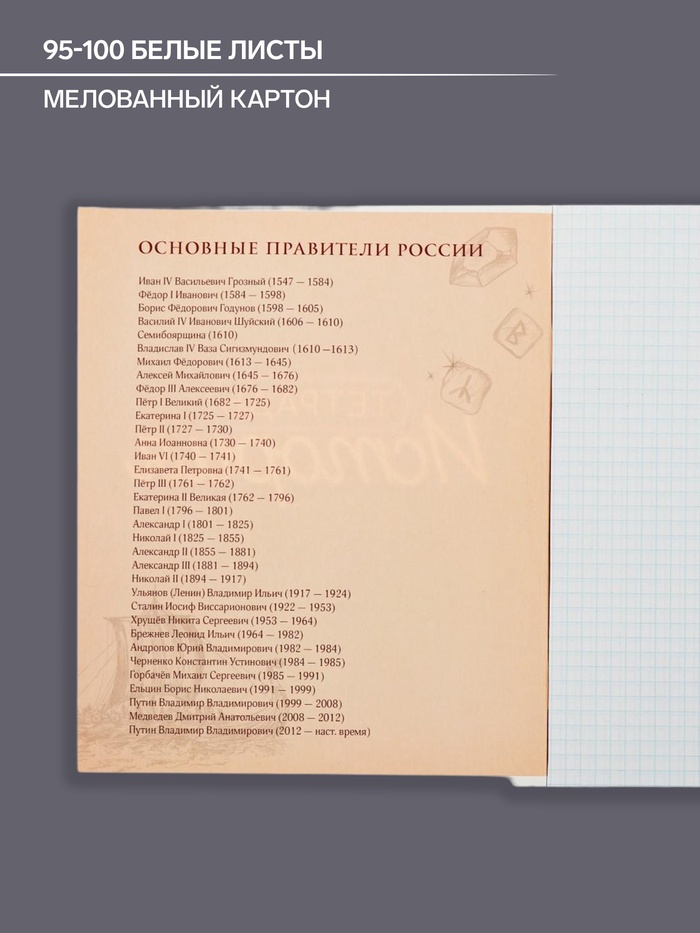 95-100 БЕЛЫЕ ЛИСТЫ
МЕЛОВАННЫЙ КАРТОН
ОСНОВНЫЕ ПРАВИТЕЛИ РОССИИ
Иван IV Васильевич Грозный (1547 — 1584)
Фёдор I Иванович (1584 — 1598)
Борис Фёдорович Годунов (1598 — 1605)
Василий IV Иванович Шуйский (1606 — 1610)
Семибоярщина (1610)
Владислав IV Ваза Сигизмундович (1610 —1613)
Михаил Фёдорович (1613 — 1645)
Алексей Михайлович (1645 — 1676)
Фёдор III Алексеевич (1676 — 1682)
Пётр I Великий (1682 — 1725)
Екатерина I (1725 — 1727)
Пётр II (1727 — 1730)
Анна Иоанновна (1730 — 1740)
Иван VI (1740 — 1741)
Елизавета Петровна (1741 — 1761)
Пётр III (1761 — 1762)
Екатерина II Великая (1762 — 1796)
Павел I (1796 — 1801)
Александр I (1801 — 1825)
Николай I (1825 — 1855)
Александр II (1855 — 1881)
Александр III (1881 — 1894)
Николай II (1894 — 1917)
Ульянов (Ленин) Владимир Ильич (1917 — 1924)
Сталин Иосиф Виссарионович (1922 — 1953)
Хрущёв Никита Сергеевич (1953 — 1964)
Брежнев Леонид Ильич (1964 — 1982)
Андропов Юрий Владимирович (1982 — 1984)
Черненко Константин Устинович (1984 — 1985)
Горбачёв Михаил Сергеевич (1985 — 1991)
Ельцин Борис Николаевич (1991 — 1999)
Путин Владимир Владимирович (1999 — 2008)
Медведев Дмитрий Анатольевич (2008 — 2012)
Путин Владимир Владимирович (2012 — наст. время)